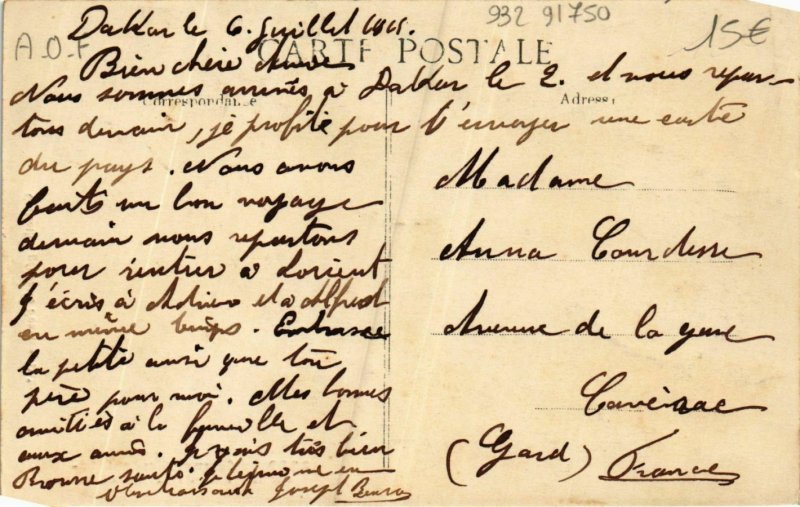 932 91750
15€
A.O.F
Dakar le 6 Juillet
CARTE POSTALE
Bien chère Anna
Correspondance
Adresse
Nous sommes arrivés à Dakar le 2. et nous repar-
tons demain, je profite pour t'envoyer une carte
du pays. Nous avons
faits un bon voyage
demain nous repartons
pour rentrer a Lorient
J'écris à et a Alfred
en même temps. Embrasse
la petite ainsi que ton
père pour moi. Mes bonnes
amitiés à la famille et
aux amis. Je vais très bien
Bonne santé.
en t'embrassant Joseph
Madame
Anna
Avenue de la gare
Caveirac
(Gard) France